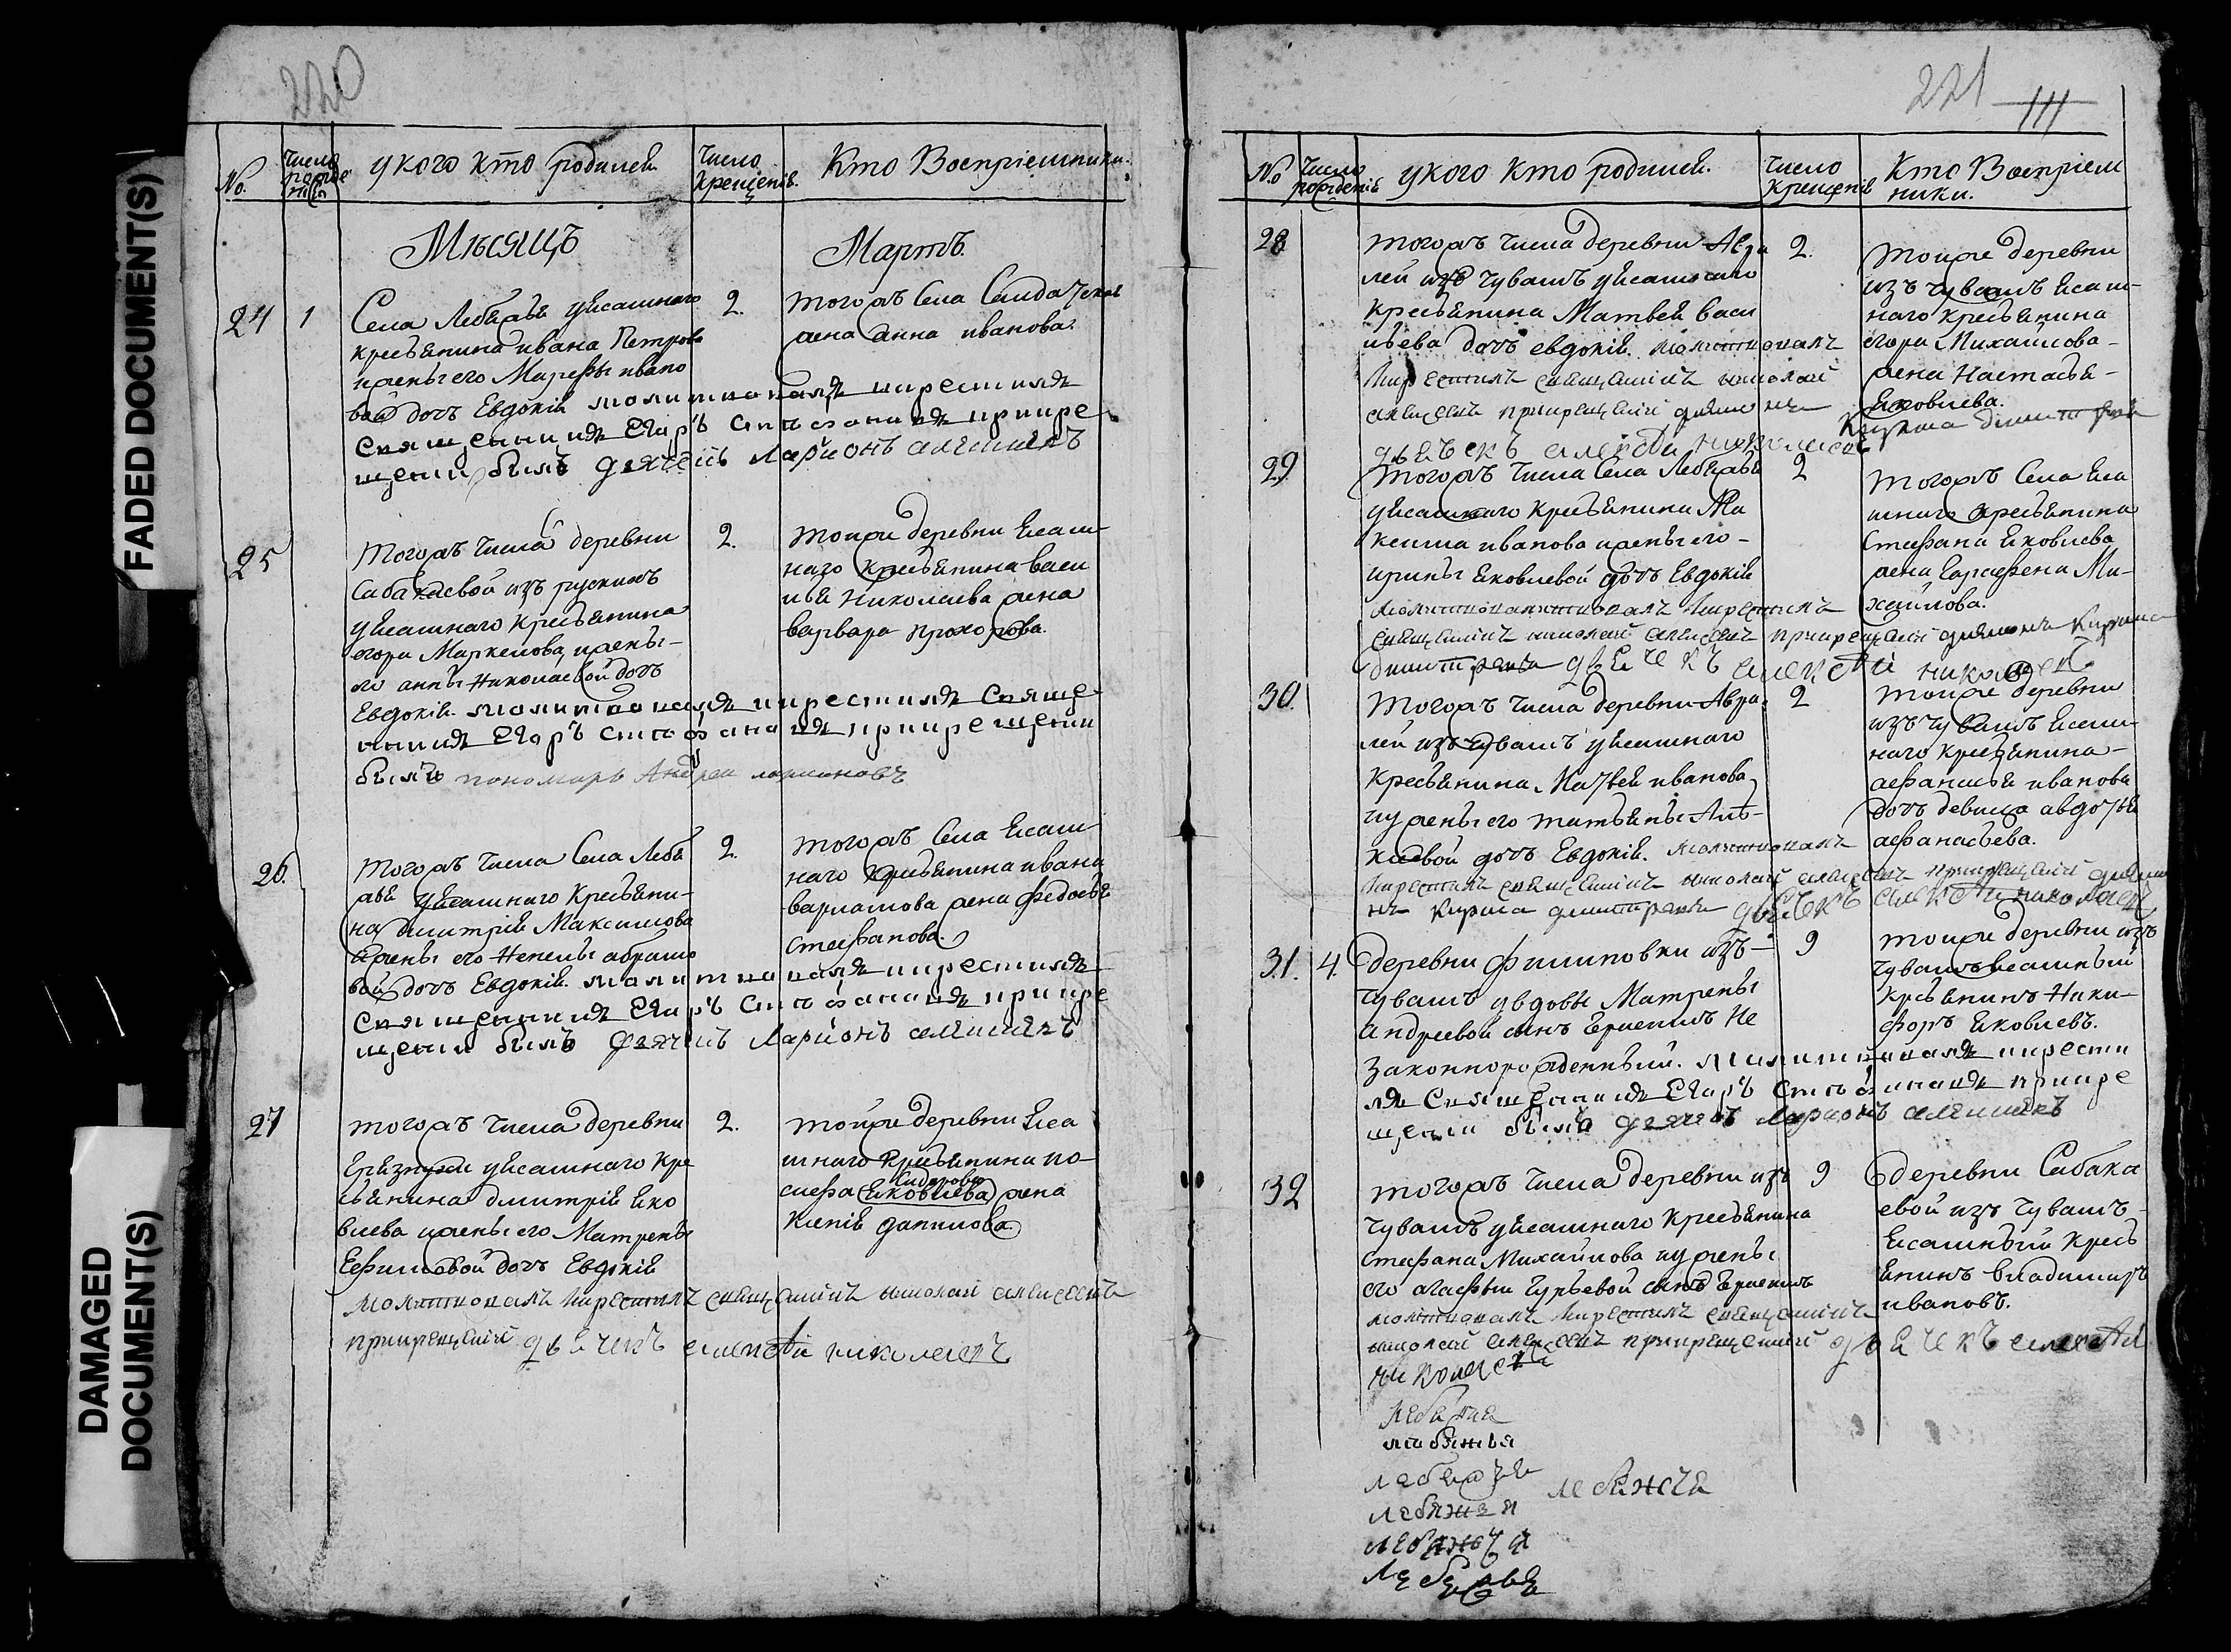 FADED DOCUMENT(S)
DAMAGED
DOCUMENT(S)
220
No.
Число рожденія
у кого кто родился.
Число крещенія.
Кто Воспріемники.
Мѣсяцъ
Мартъ.
24
1
Села Лебяжья у ясашнаго
крестьянина ивана Петрова
и жены его Марѳы ивано
вой дочь Евдокія молитвовалъ и крестилъ
священникъ Егоръ Стефановъ при кре
щеніи былъ дьячекъ Ларионъ
2.
тогожъ Села
жена Анна иванова.
25
Тогожъ Числа деревни
Сабакаевой изъ рускихъ
у ясашнаго крестьянина
егора Маркелова, и жены-
его анны Николаевой дочь
Евдокія. молитвовалъ и крестилъ Свяще
нникъ Егоръ Стефановъ при крещеніи
былъ пономарь Андрей ларионовъ
2.
тойже деревни Ясаш-
наго крестьянина васи
лья Николаева жена
варвара Прохорова.
26.
Тогожъ Числа Села Лебя
жья у ясашнаго Крестьяни-
на дмитрія Максимова
и жены его Ненилы абрамо
вой дочь Евдокія. молитвовалъ и крестилъ
Священникъ Егоръ Стефановъ при кре
щеніи былъ дьячекъ Ларионъ
2.
тогожъ Села Ясаш-
наго крестьянина ивана
варламова жена Федосья
стефанова.
27
тогожъ Числа деревни
у ясашнаго Кре
стьянина дмитрія Яко
влева и жены его Матрены
Ефимовой дочь Евдокія
молитвовалъ крестилъ священникъ николай алексеевъ
при крещеніи дьячекъ алексѣй николаевъ
2.
тойже деревни Яса
шнаго Крестьянина ио-
сифа Яковлева жена
Ксенія данилова
221
111
No
Число рожденія
у кого кто родился.
Число крещенія
Кто Воспріем
ники.
28
тогожъ Числа деревни Авра
лей изъ чувашъ у ясашнаго
крестьянина Матвея васи
льева дочь евдокія. молитвовалъ
крестилъ священникъ николай
алексеевъ при крещеніи дьяконъ
дьячекъ алексѣй николаевъ
2.
тойже деревни
изъ чувашъ ясаш-
наго крестьянина
егора Михайлова-
жена Настасья-
Яковлева.
Кузьма
29.
Тогожъ Числа Села Лебяжья
у ясашнаго Крестьянина Ма
ксима иванова и жены его-
ирины Яковлевой дочь Евдокія
молитвовалъ крестилъ
священникъ николай алексеевъ при крещеніи дьяконъ
дьячекъ алексѣй николаевъ
2
Тогожъ Села Яса
шнаго крестьянина
Стефана Яковлева
жена Ма-
хайлова.
30.
Тогожъ Числа деревни Авра-
лей изъ чувашъ у ясашнаго
Крестьянина Матвея иванова,
и у жены его татьяны
дочь Евдокія. молитвовалъ
крестилъ священникъ николай алексеевъ при крещеніи
дьячекъ алексѣй николаевъ
2
тойже деревни
изъ чувашъ Ясаш-
наго крестьянина-
афанасья иванова
дочь девица авдотья
афанасьева.
31.
4.
деревни Филиповки изъ-
чувашъ у вдовы Матрены
андреевой сынъ не
законнорожденный. молитвовалъ и крести
лъ Священникъ Егоръ Стефановъ при кре
щеніи былъ дьячекъ Ларионъ
9
тойже деревни изъ
чувашъ ясашный
крестьянинъ Ники-
форъ Яковлевъ.
32
тогожъ Числа деревни изъ
чувашъ у ясашнаго Крестьянина
Стефана Михайлова и у жены
его агафьи Гурьевой сынъ
молитвовалъ крестилъ священникъ
николай алексеевъ при крещеніи дьячекъ алексѣй
николаевъ
9
деревни Сабака
евой изъ чувашъ-
Ясашный Кресть
янинъ владимиръ
ивановъ.